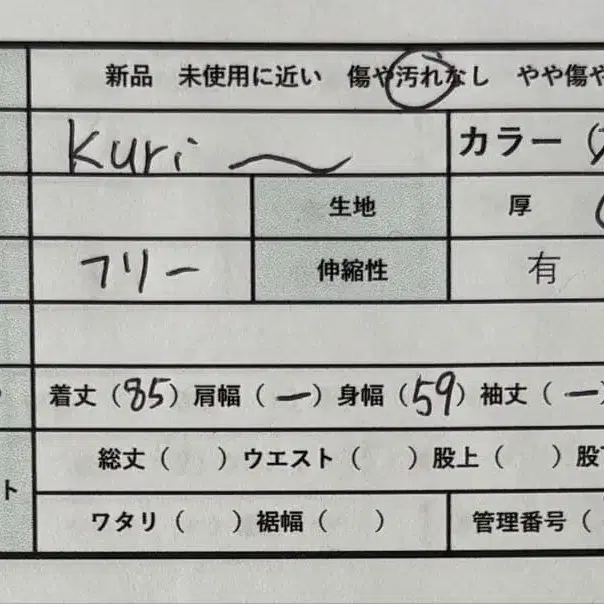 新品 未使用に近い 傷や汚れなし やや傷や
Kuri 〜 カラー（
生地 厚
フリー 伸縮性 有
着丈（85）肩幅（ー）身幅（59）袖丈（ー）
総丈（ ）ウエスト（ ）股上（ ）股下
ト
ワタリ（ ）裾幅（ ） 管理番号（